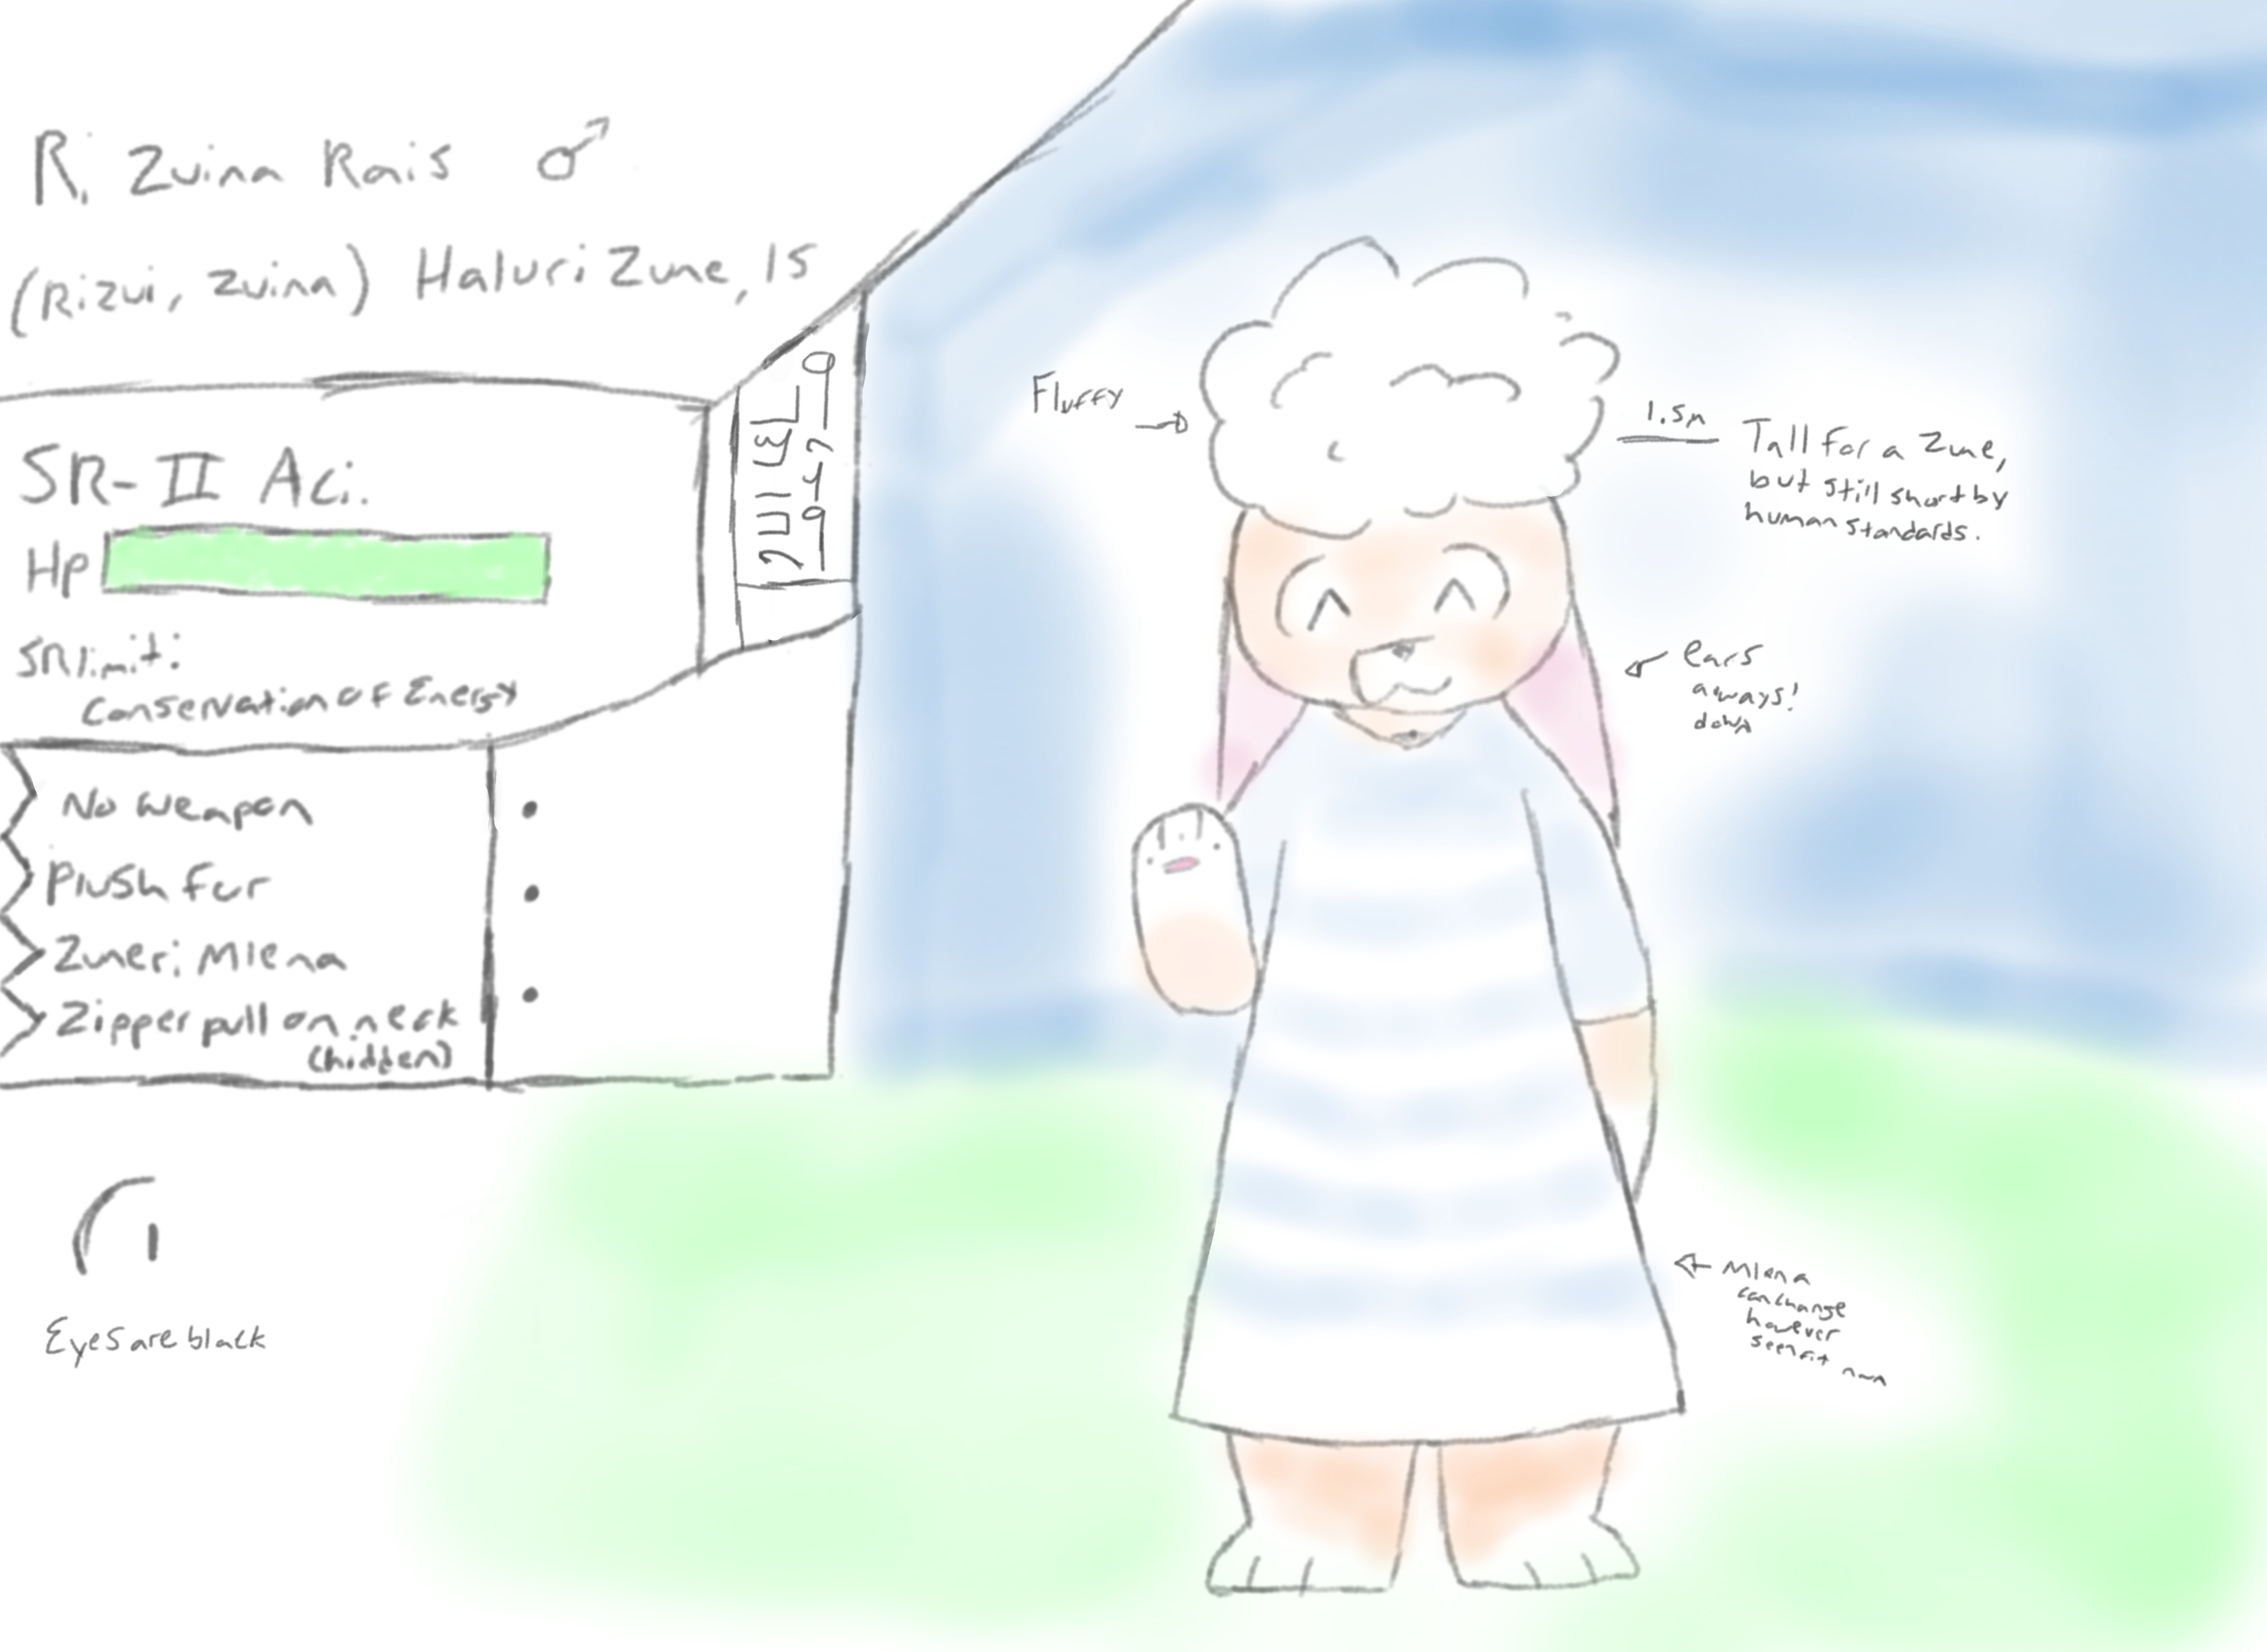 Ri Zuina Rais ♂
(Rizui, Zuina) Haluri Zune, 15
SR-II Aci.
Hp
SR limit:
Conservation of Energy
No weapon
Plush fur
Zuneri Mlena
Zipper pull on neck
(hidden)
Eyes are black
Fluffy
1.5m
Tall for a Zune,
but still short by
human standards.
ears
aways!
down
Mlena
can change
however
seen fit